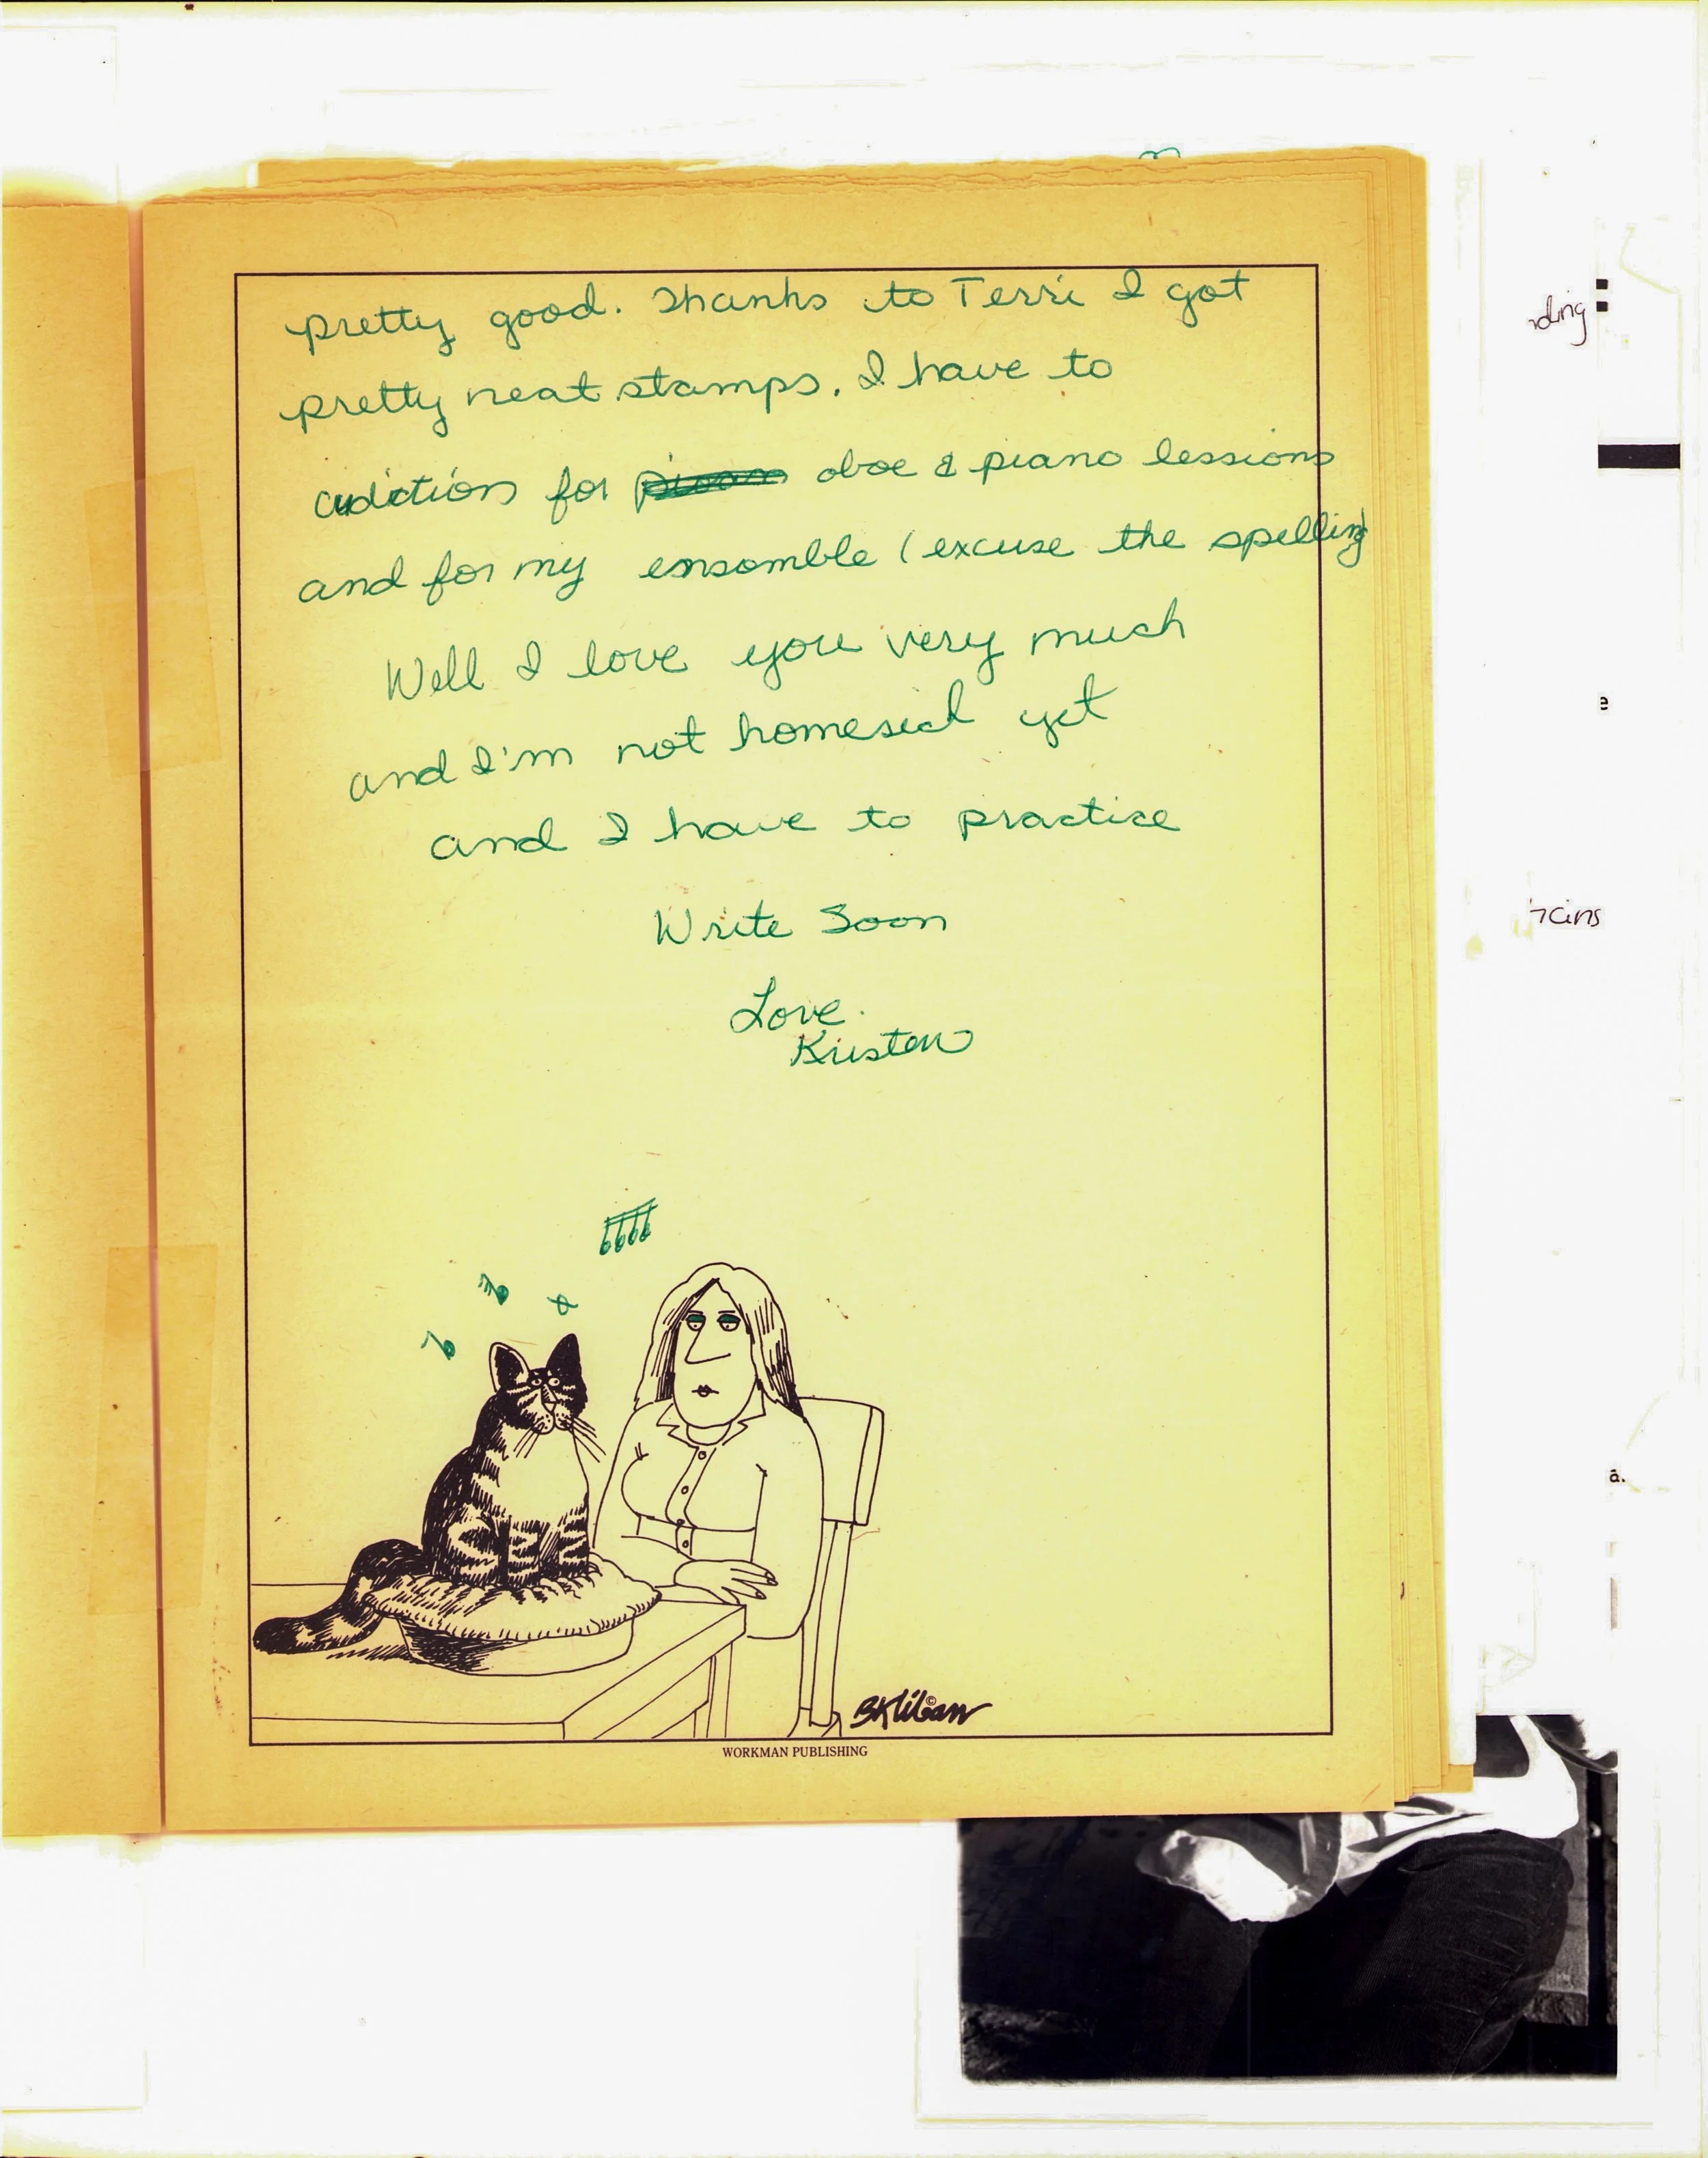 pretty good. Thanks to Terri I got
pretty neat stamps. I have to
audictions for oboe & piano lessions
and for my ensomble (excuse the spelling
Well I love you very much
and I'm not homesick yet
and I have to practice
Write Soon
Love
Kristen
BKliban ©
WORKMAN PUBLISHING
ding
e
a.